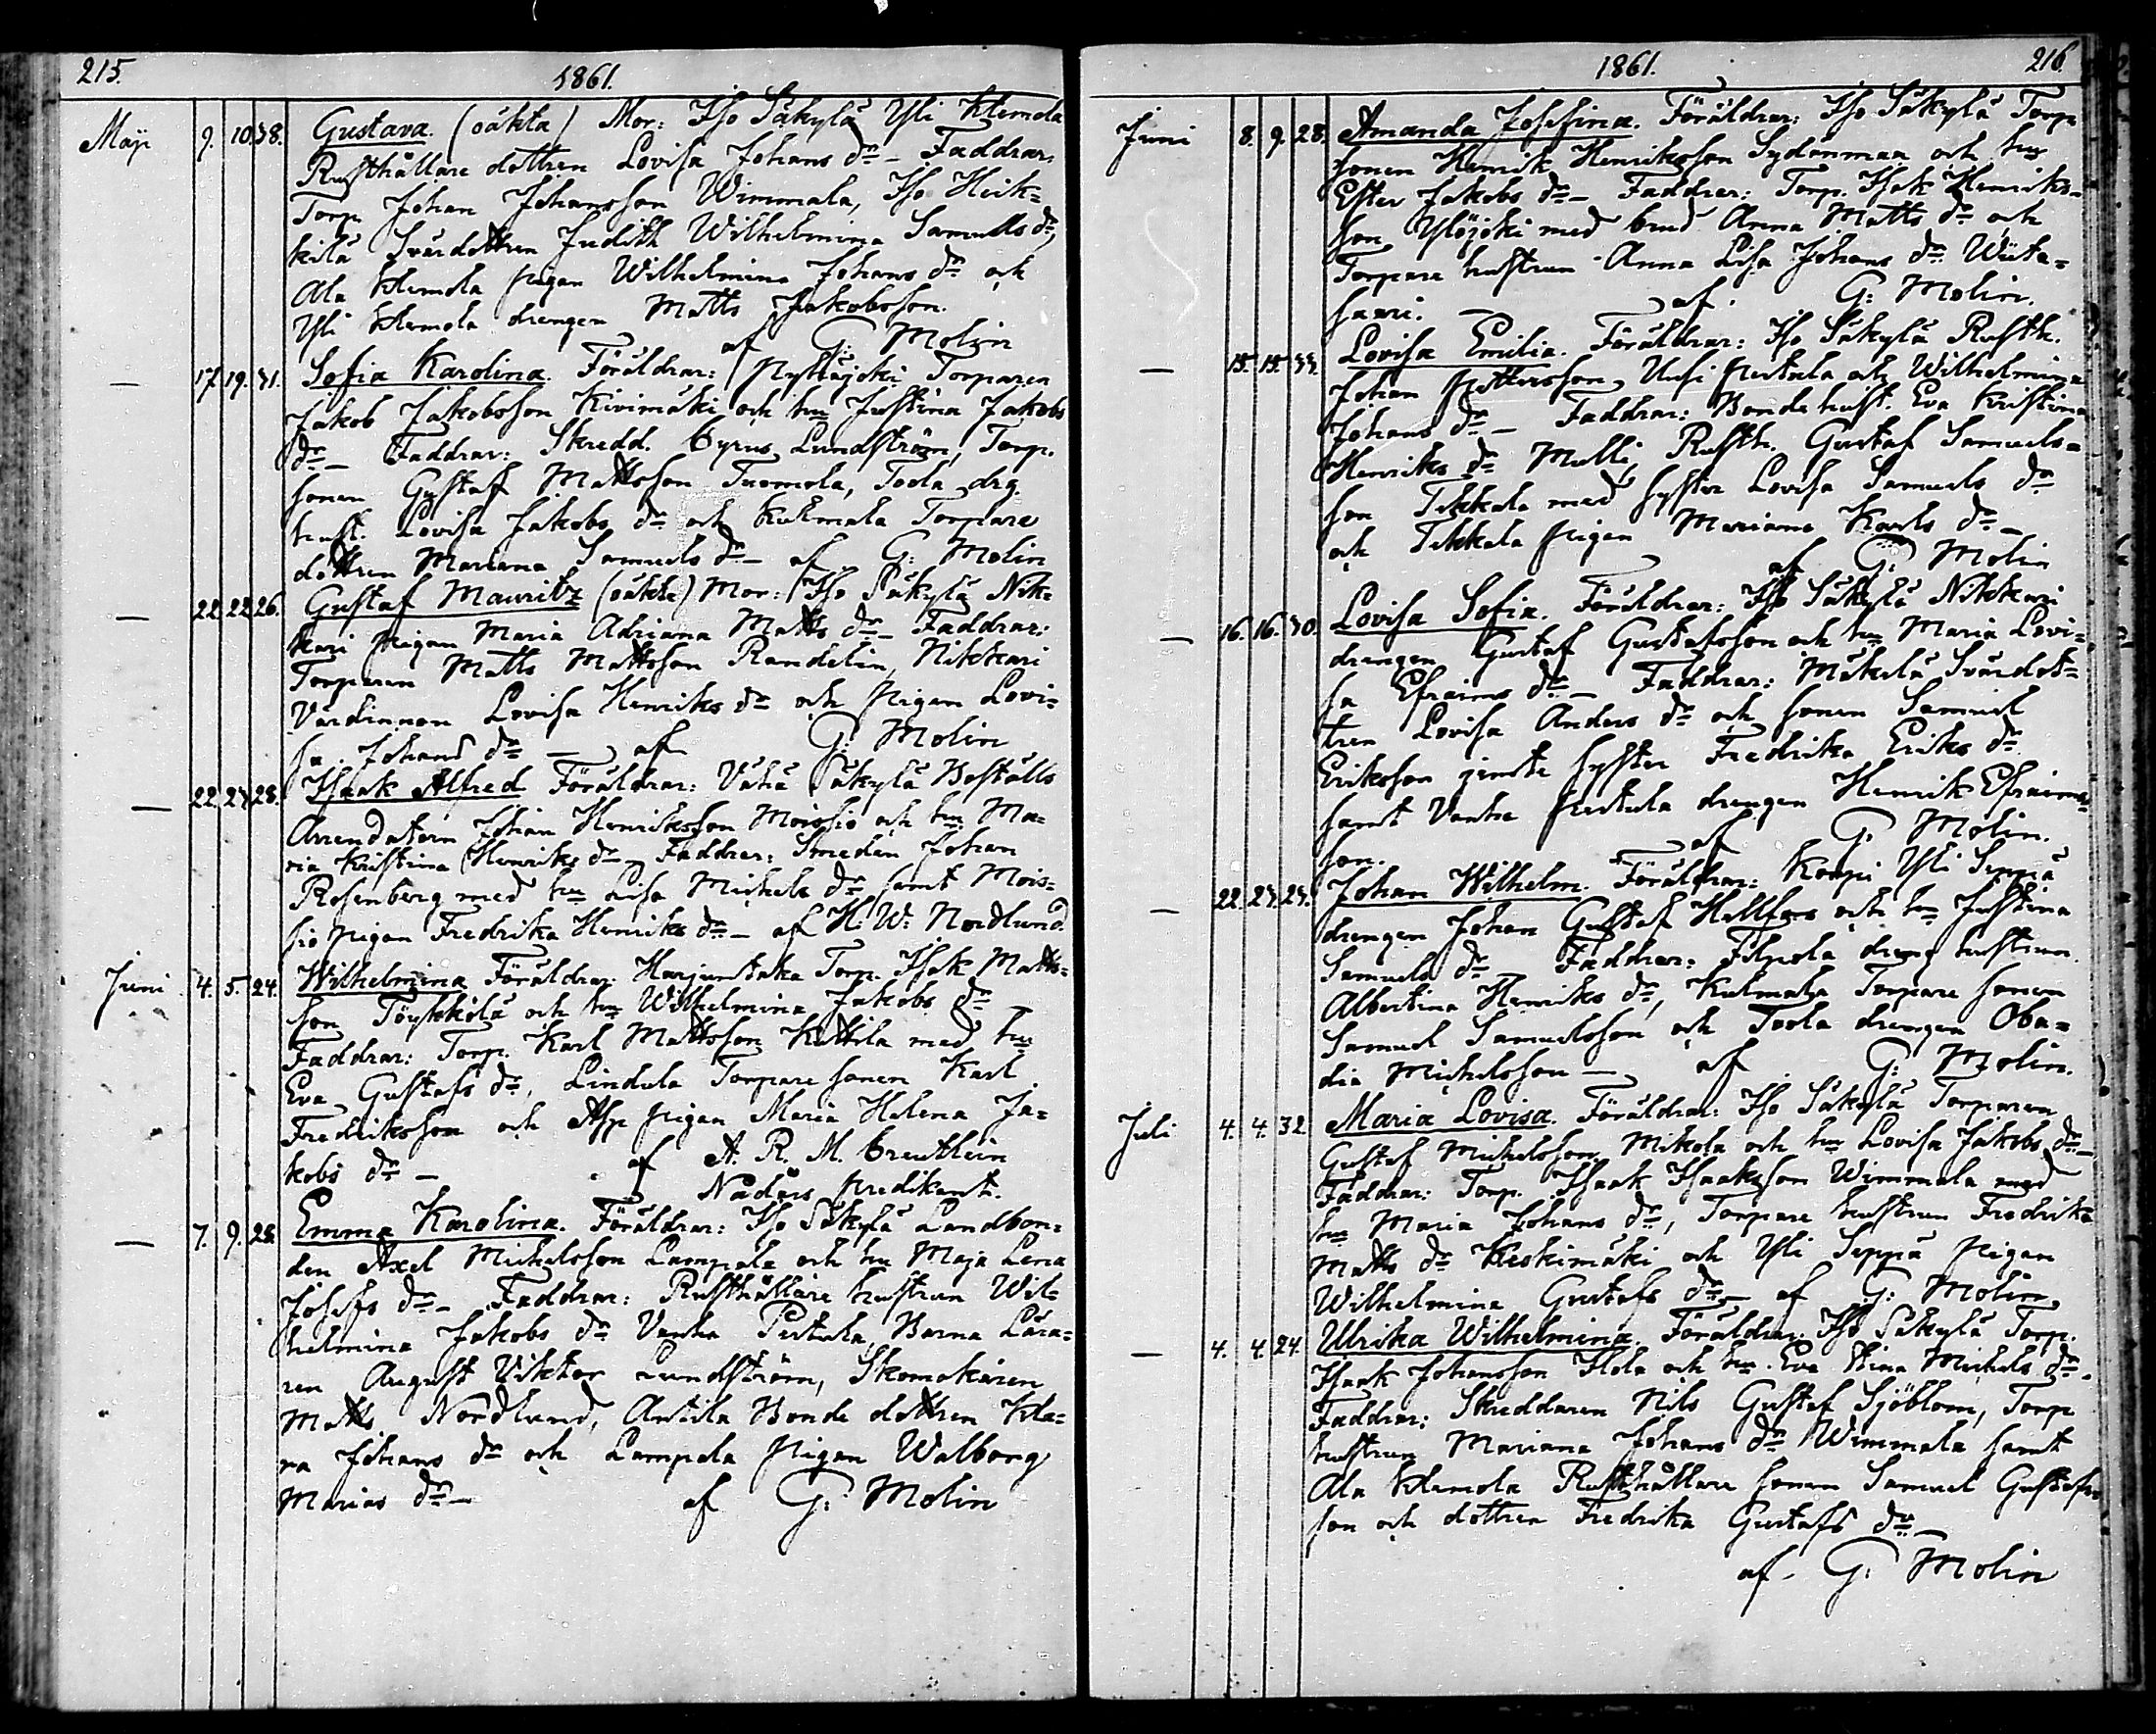 215.
1861.
Maji 9. 10. 38. Gustava. (oäkta) Mor: Iso Säkylä Yli Klemola
Rusthållare dottren Lovisa Johans dr – Faddrar:
Torp. Johan Johansson Wimmala, Iso Heik=
kilä Svärdottren Judith Wilhelmina Samuels dr,
Ala Klemola pigan Wilhelmina Johans dr och
Yli Klemola drengen Matts Jakobsson.
af G: Molin
— 17. 19. 31. Sofia Karolina. Föräldrar: Pyhäjoki Torparen
Jakob Jakobsson Kivimäki och hu Justina Jakobs
dr – Faddrar: Skredd. Cyrus Lundström, Torp.
sonen Gustaf Mattsson Tuomola, Toola drg.
hust. Lovisa Jakobs dr och Kulmala Torpare
dottren Mariana Samuels dr – af G: Molin
— 22. 22. 26. Gustaf Mauritz (oäkta) Mor: Iso Säkylä Nik=
kari pigan Maria Adriana Matts dr – Faddrar:
Torparen Matts Mattsson Randelin, Nikkari
Värdinnan Lovisa Henriks dr och pigan Lovi=
sa Johans dr – af G: Molin
— 22. 23. 28. Isaak Alfred Föräldrar: Vähä Säkylä Boställs
Arrendatorn Johan Henriksson Moissio och hu Ma=
ria Kristina Henriks dr – Faddrar: Smeden Johan
Rosenberg med hu Lisa Michels dr samt Mois=
sio pigan Fredrika Henriks dr – af H. W. Nordlund.
Juni 4. 5. 24. Wilhelmina Föräldrar: Harjuntaka Torp. Isak Matts=
son Töykkölä och hu Wilhelmina Jakobs dr –
Faddrar: Torp. Karl Mattsson Kattila med hu
Eva Gustafs dr, Lindula Torpare sonen Karl
Fredriksson och pigan Maria Helena Ja=
kobs dr – af A. R. M. Creutlein
Nådårs predikant.
— 7. 9. 28. Emma Karolina. Föräldrar: Iso Säkylä Landbon=
den Axel Michelsson Lampola och hu Maja Lena
Josefs dr – Faddrar: Rusthållare hustrun Wil=
helmina Jakobs dr Vanha Pertula, Barna Lära=
ren August Viktor Lundström, Skomakaren
Matts Nordlund, Antila Bonde dottren Kla=
ra Johans dr och Lampola pigan Walborg
Marias dr – af G: Molin
1861. 216.
Juni 8. 9. 28. Amanda Josefina. Föräldrar: Iso Säkylä Torp.
sonen Henrik Henriksson Sydänmaa och hu
Ester Jakobs dr – Faddrar: Torp. Isak Henriks=
son Ylöjoki med brud Anna Matts dr och
Torpare hustrun Anna Lisa Johans dr Wiita=
saari. – af G: Molin.
— 15. 15. 33. Lovisa Emilia. Föräldrar: Iso Säkylä Rusth.
Johan Pettersson Uusi Pertula och Wilhelmina
Johans dr – Faddrar: Bonde hust. Eva Kristina
Henriks dr Mulli, Rusth. Gustaf Samuels=
son Tikkala med syster Lovisa Samuels dr
och Tikkala pigan Mariana Karls dr –
af G: Molin
— 16. 16. 30. Lovisa Sofia. Föräldrar: Iso Säkylä Nikkari
drengen Gustaf Gustafsson och hu Maria Lovi=
sa Efraims dr – Faddrar: Mäkelä Svärdot=
tren Lovisa Anders dr och sonen Samuel
Eriksson jemte syster Fredrika Eriks dr
samt Vanha Pertula drengen Henrik Efraims=
son. af G. Molin.
— 22. 23. 23. Johan Wilhelm. Föräldrar: Korpi Yli Seppä
drengen Johan Gustaf Hellfors och hu Justina
Samuels dr Faddrar: Filpola dreng hustrun
Albertina Henriks dr, Kulmala Torpare sonen
Samuel Samuelsson och Toola drengen Oba=
dia Michelsson – af G: Molin.
Juli 4. 4. 32. Maria Lovisa. Föräldrar: Iso Säkylä Torparen
Gustaf Michelsson Mikola och hu Lovisa Jakobs dr –
Faddrar: Torp. Isaak Isaaksson Wimmala med
hu Maria Johans dr, Torpare hustrun Fredrika
Matts dr Keskimäki och Yli Seppä pigan
Wilhelmina Gustafs dr – af G: Molin
— 4. 4. 24. Ulrika Wilhelmina. Föräldrar: Iso Säkylä Torp.
Isaak Johansson Ilola och hu Eva Stina Michels dr.
Faddrar: Skreddaren Nils Gustaf Sjöblom, Torp.
hustrun Mariana Johans dr Wimmala samt
Ala Klemola Rusthållare sonen Samuel Gustafs=
son och dottren Fredrika Gustafs dr –
af G: Molin